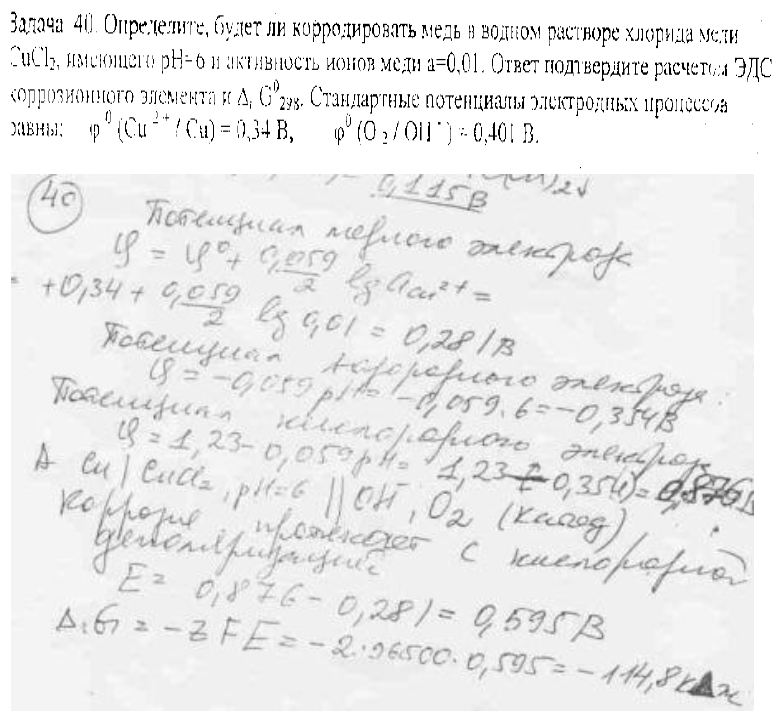 Задача 40. Определите, будет ли корродировать медь в водном растворе хлорида меди
CuCl₂, имеющего pH=6 и активность ионов меди а=0,01. Ответ подтвердите расчетом ЭДС
коррозионного элемента и Δᵣ G⁰₂₉₈. Стандартные потенциалы электродных процессов
равны: φ⁰ (Cu ²⁺ / Cu) = 0,34 В, φ⁰ (O ₂ / OH ⁻) = 0,401 В.
0,115В
40
Потенциал медного электрода
φ = φ⁰ + 0,059/2 lg aCu²⁺ =
= +0,34 + 0,059/2 lg 0,01 = 0,281В
Потенциал водородного электрода:
φ = -0,059 pH = -0,059·6 = -0,354В
Потенциал кислородного электрода
φ = 1,23 - 0,059 pH = 1,23 - 0,354) = 0,876В
A Cu | CuCl₂, pH=6 || OH⁻, O₂ (катод)
Коррозия протекает с кислородной
деполяризацией
E = 0,876 - 0,281 = 0,595В
ΔᵣG = -zFE = -2·96500·0,595 = -114,8 кДж